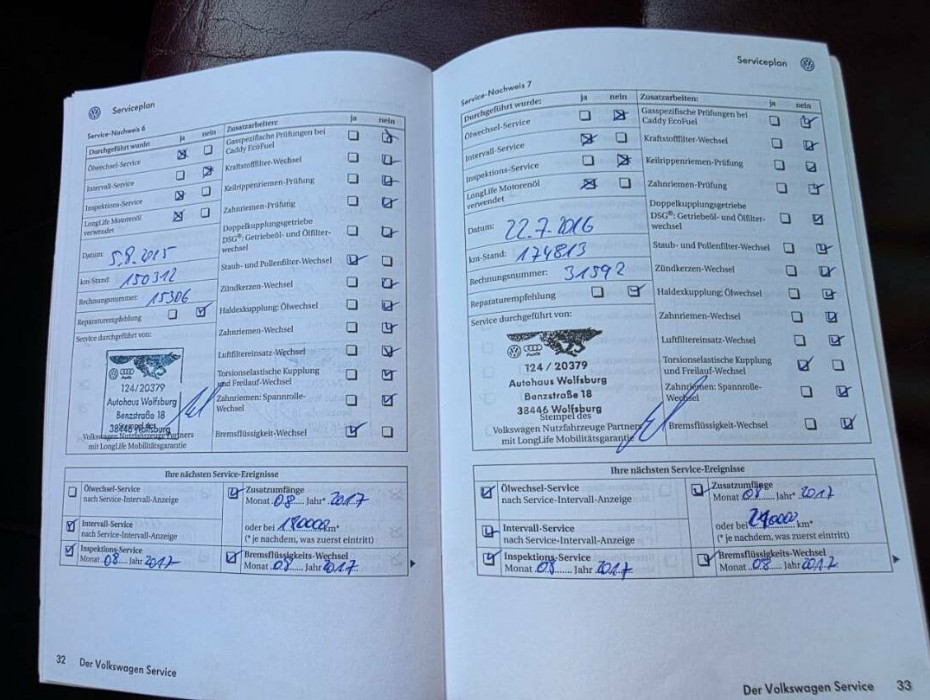 Serviceplan
Service-Nachweis 6
Durchgeführt wurde: ja nein
Ölwechsel-Service
Intervall-Service
Inspektions-Service
LongLife Motorenöl
verwendet
Datum: 5.8.2015
km-Stand: 150312
Rechnungsnummer: 15306
Reparaturempfehlung
Service durchgeführt von:
Audi
124/20379
Autohaus Wolfsburg
Benzstraße 18
38446 Wolfsburg
Stempel des
Volkswagen Nutzfahrzeuge Partners
mit LongLife Mobilitätsgarantie
Zusatzarbeiten: ja nein
Gasspezifische Prüfungen bei
Caddy EcoFuel
Kraftstofffilter-Wechsel
Keilrippenriemen-Prüfung
Zahnriemen-Prüfung
Doppelkupplungsgetriebe
DSG®: Getriebeöl- und Ölfilter-
wechsel
Staub- und Pollenfilter-Wechsel
Zündkerzen-Wechsel
Haldexkupplung: Ölwechsel
Zahnriemen-Wechsel
Luftfiltereinsatz-Wechsel
Torsionselastische Kupplung
und Freilauf-Wechsel
Zahnriemen: Spannrolle-
Wechsel
Bremsflüssigkeit-Wechsel
Ihre nächsten Service-Ereignisse
Ölwechsel-Service
nach Service-Intervall-Anzeige
Intervall-Service
nach Service-Intervall-Anzeige
Inspektions-Service
Monat 08 Jahr 2017
Zusatzumfänge
Monat 08 Jahr* 2017
oder bei 180000 km*
(* je nachdem, was zuerst eintritt)
Bremsflüssigkeits-Wechsel
Monat 08 Jahr 2017
32 Der Volkswagen Service
Serviceplan
Service-Nachweis 7
Durchgeführt wurde: ja nein
Ölwechsel-Service
Intervall-Service
Inspektions-Service
LongLife Motorenöl
verwendet
Datum: 22.7.2016
km-Stand: 174813
Rechnungsnummer: 31592
Reparaturempfehlung
Service durchgeführt von:
Audi
124 / 20379
Autohaus Wolfsburg
Benzstraße 18
38446 Wolfsburg
Stempel des
Volkswagen Nutzfahrzeuge Partners
mit LongLife Mobilitätsgarantie
Zusatzarbeiten: ja nein
Gasspezifische Prüfungen bei
Caddy EcoFuel
Kraftstofffilter-Wechsel
Keilrippenriemen-Prüfung
Zahnriemen-Prüfung
Doppelkupplungsgetriebe
DSG®: Getriebeöl- und Ölfilter-
wechsel
Staub- und Pollenfilter-Wechsel
Zündkerzen-Wechsel
Haldexkupplung: Ölwechsel
Zahnriemen-Wechsel
Luftfiltereinsatz-Wechsel
Torsionselastische Kupplung
und Freilauf-Wechsel
Zahnriemen: Spannrolle-
Wechsel
Bremsflüssigkeit-Wechsel
Ihre nächsten Service-Ereignisse
Ölwechsel-Service
nach Service-Intervall-Anzeige
Intervall-Service
nach Service-Intervall-Anzeige
Inspektions-Service
Monat 08 Jahr 2017
Zusatzumfänge
Monat 08 Jahr* 2017
oder bei 210000 km*
(* je nachdem, was zuerst eintritt)
Bremsflüssigkeits-Wechsel
Monat 08 Jahr 2017
Der Volkswagen Service 33